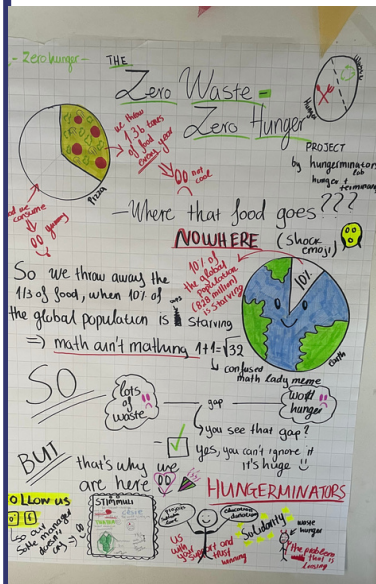 - Zero hunger -
THE
Zero Waste -
Zero Hunger
PROJECT
by hungerminators
hunger +
we throw
1.3b tones
of food
every year
not
cool
Pizza
consume
yummy
- Where that food goes ???
NOWHERE (shock
emoji)
10% of
the global
population
(828 million)
is starving
10%
Earth
So we throw away the
1/3 of food, when 10% of
the global population is starving
=> math ain't mathing 1+1=√32
↳ confused
math lady meme
SO
lots
of
waste
gap
world
hunger
↳ you see that gap?
yes, you can't ignore it
it's huge
BUT
that's why we
are here
HUNGERMINATORS
OLLOW US
↳ our
doesn't
STIMMULI
education
donation
Solidarity
US
with
your support and
trust
winning
waste
hunger
the problem
that is
losing